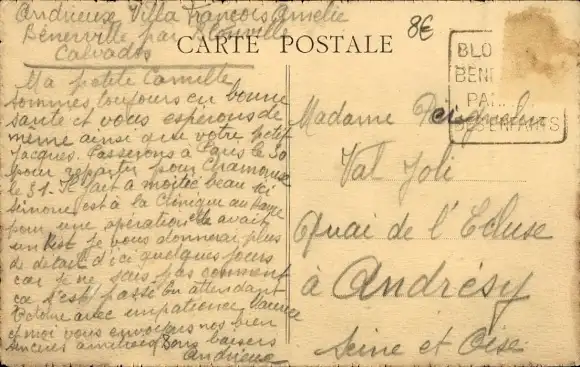 Andrieux Villa François Amélie
Bénerville par Blonville
Calvados
8€
CARTE POSTALE
BLO
BENE
PA
DES ENFANTS
Ma petite Camille
Sommes toujours en bonne
santé et vous espérons de
même ainsi que votre petit
Jacques. Passerons à Paris le 30
pour repartir pour
le 31. Il fait à moitié beau ici
Simone est à la Clinique au Havre
pour une opération elle avait
un Kist je vous donnerai plus
de détail d'ici quelques jours
car je ne sais pas comment
ça s'est passé. En attendant
avec impatience Maurice
et moi vous envoyons nos bien
sincères amitiés Bons baisers
Andrieux
Madame
Val Joli
Quai de l'Ecluse
à Andrésy
Seine et Oise